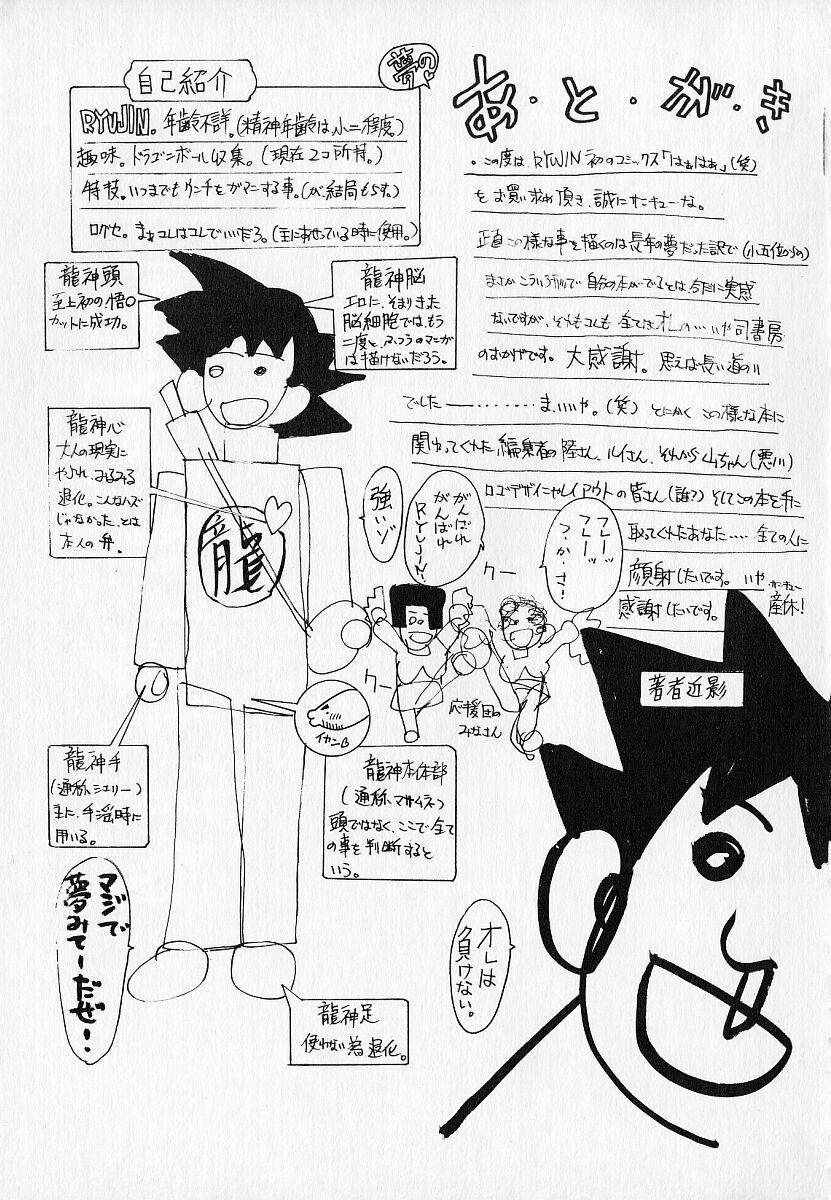 夢の♡
あ・と・が・き
自己紹介
RYUJIN。年齢不詳。(精神年齢は、小二程度)
趣味。ドラゴンボール収集。(現在2コ所持。)
特技。いつまでもウンチをガマンする事。(が、結局もらす。)
口グセ。まぁコレはコレでいいだろ。(主にあせっている時に使用。)
・この度は、RYUJIN初のコミックス「はぁはぁ」(笑)
をお買い求め頂き、誠にサンキューな。
正直この様な事を描くのは長年の夢だった訳で(小五位からの)
まさかこういう形で自分の本がでるとは今だに実感
ないですが、それもコレも全ては
いや司書房
のおかげです。大感謝。思えば長い道のり
でした―………ま、いいや。(笑)とにかくこの様な本に
関わってくれた編集者の陸さん、ルイさん、それから山ちゃん(悪川)
ロゴデザインやレイアウトの皆さん(誰?)そしてこの本を手に
取ってくれたあなた……全ての人に
顔射したいです。いや、サンキュー
感謝したいです。産休!
龍神頭
至上初の悟○
カットに成功。
龍神脳
エロに、そまりきった
脳細胞では、もう
二度と、ふつうのマンガ
は描けないだろう。
龍神心
大人の現実に
やぶれ、みるみる
退化。こんなハズ
じゃなかった、とは
本人の弁。
龍
強いゾ
がんばれ
がんばれ
RYUJIN!
フレーッ
フレーッ
つ・か・さ!
クー
クー
応援団の
みなさん
著者近影
イカンB
龍神手
(通称シェリー)
主に、手淫時に
用いる。
龍神本体部
(通称、マサムネ)
頭ではなく、ここで全て
の事を判断すると
いう。
マジで
夢みてーだぜ!
オレは
負けない。
龍神足
使わない為退化。